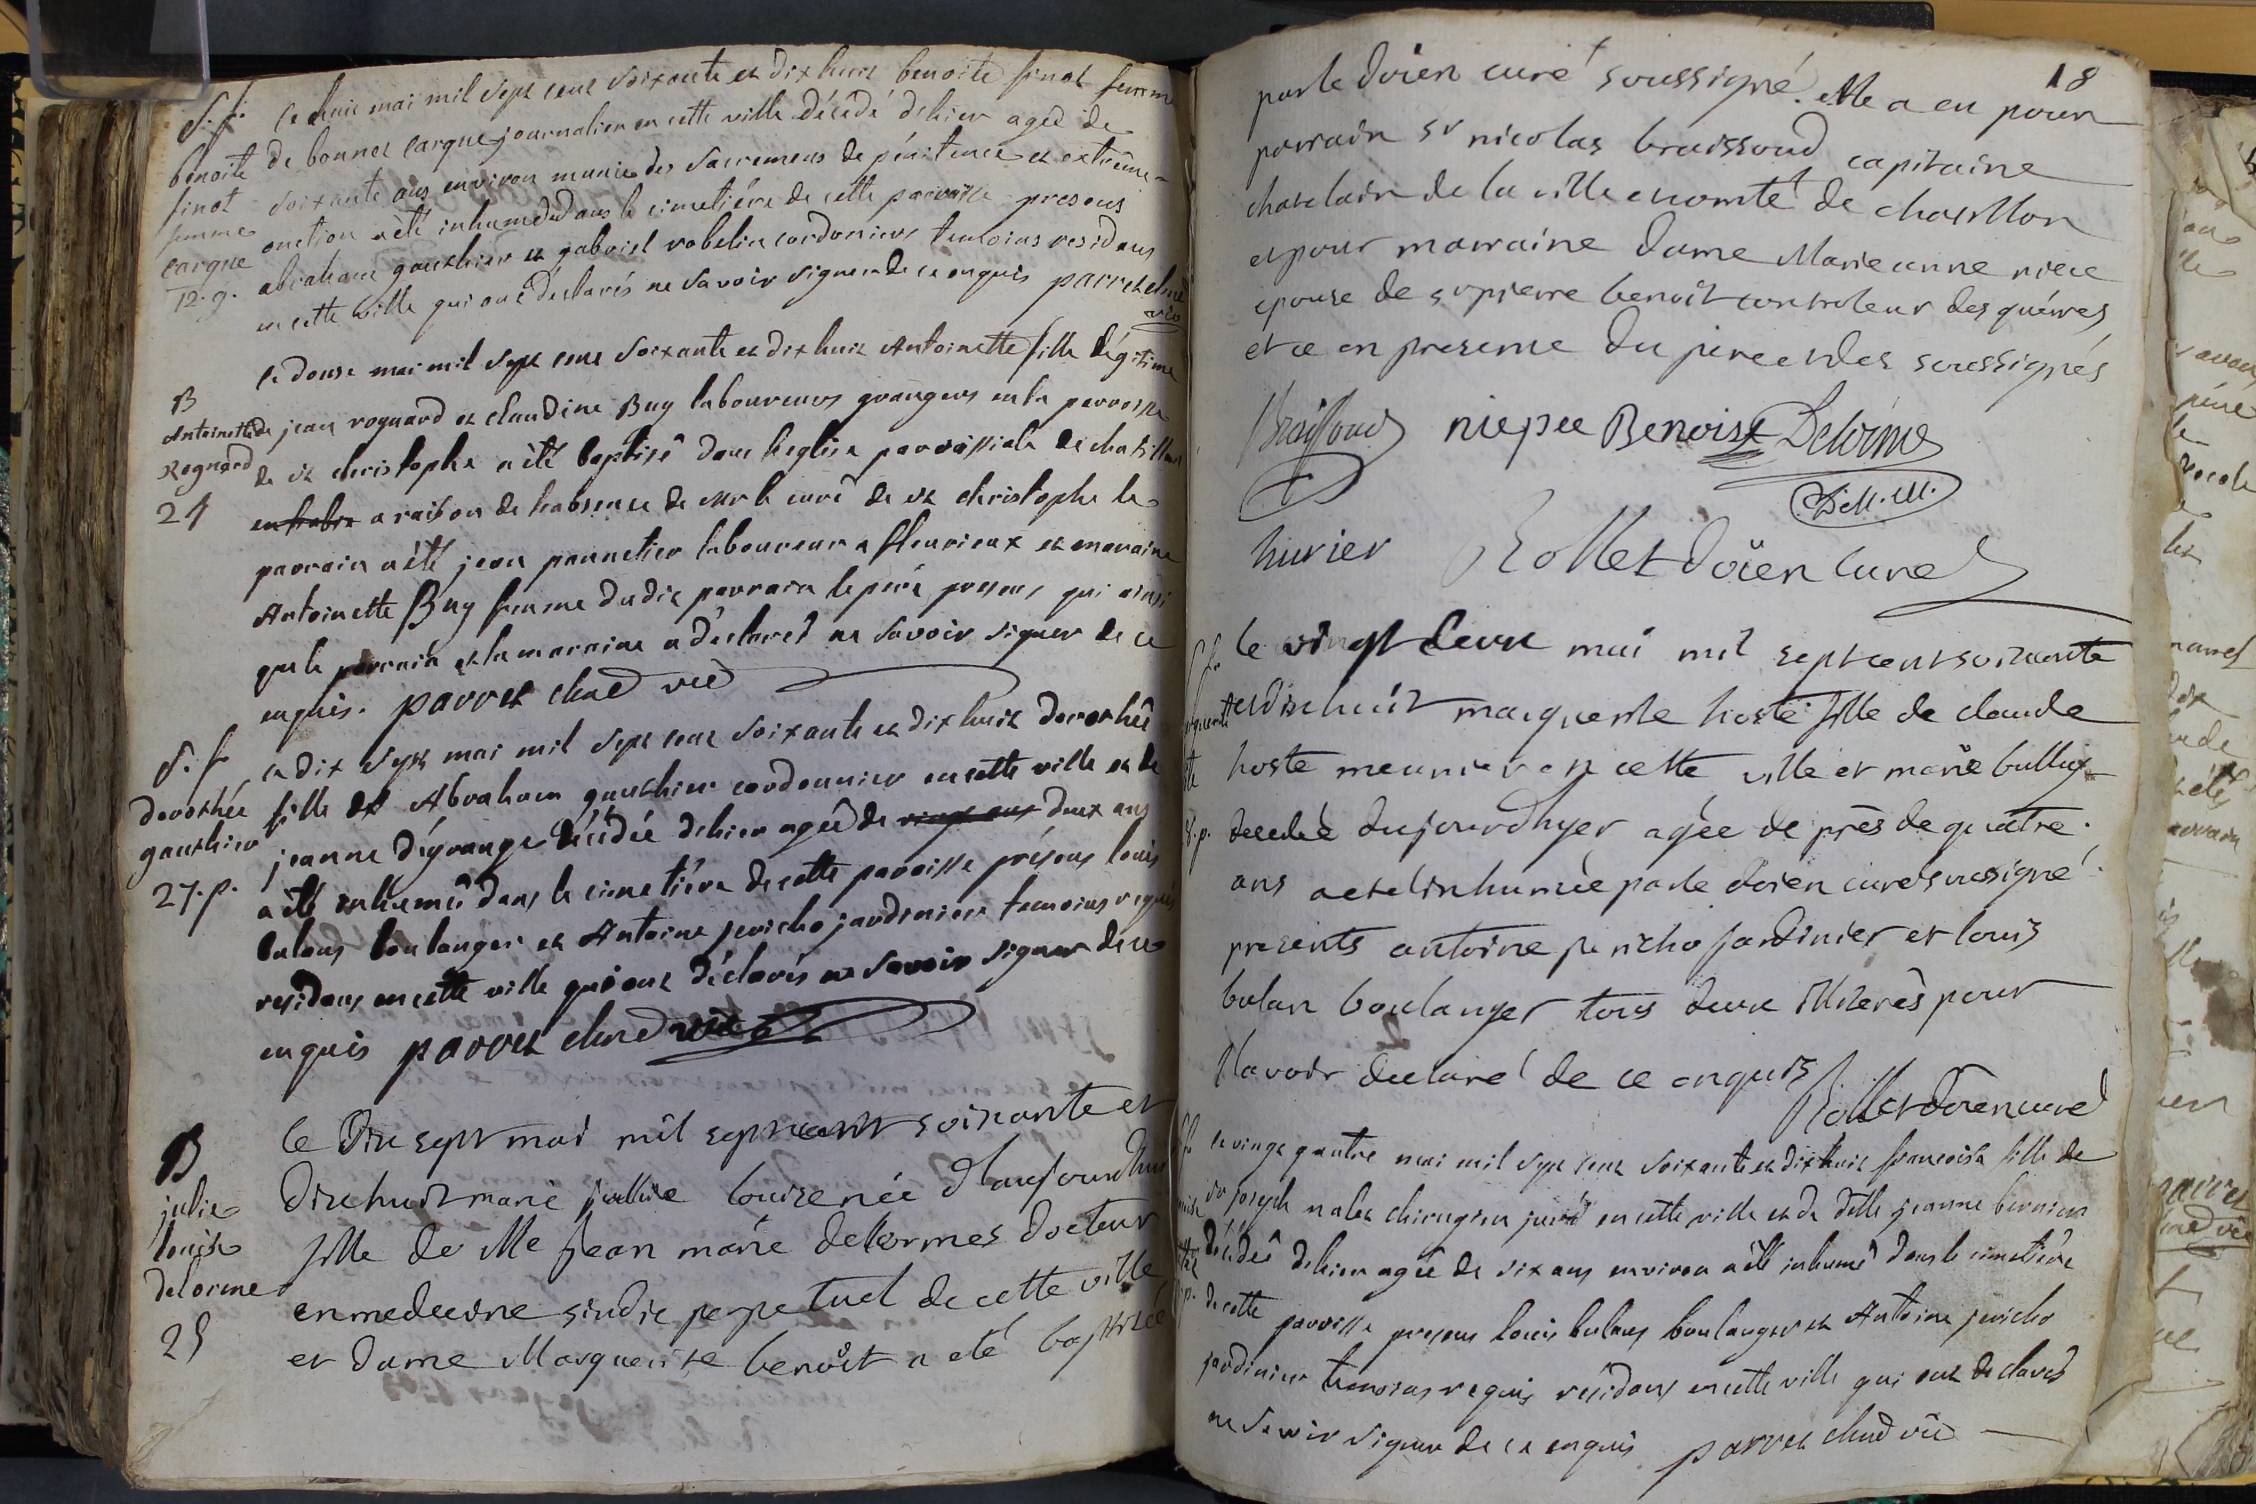 S. f.
benoite
finot
femme
cargue
12. g.
Le huit mai mil sept cent soixante et dix huit benoite finot femme
de bonnet cargue journalier en cette ville décédé dehier agée de
soixante ans environ munie des sacremens de pénitence et extrême-
onction a été inhumé dans le cimetière de cette paroisse presens
abraham gauthier et gabriel robelin cordoniers temoins residans
en cette ville qui ont déclarés ne savoir signer de ce enquis parret chne
vic
B
Antoinette
Rognard
24
le douse mai mil sept cent soixante et dix huit Antoinette fille légitime
de jean rognard et claudine Buy laboureurs grangers en la parroisse
de st christophe a été baptisé dans leglise parroissiale de chatillon
a raison de labsence de mr le curé de st christophe le
parrain a été jean pannetier laboureur a fleurieux et maraine
Antoinette Buy femme dudit parrain le père present qui ainsi
que le parrain et la maraine a déclaré ne savoir signer de ce
enquis. parret chne vic
S. f.
dorothée
gauthier
27. p.
le dix sept mai mil sept cent soixante et dix huit dorothée
fille de Abraham gauthier cordonnier en cette ville et de
jeanne dégrange décédée dehier agée de vingt ans deux ans
a été inhumé dans le cimetière de cette paroisse présens louis
bulans boulanger et Antoine jericho jardinier temoins requis
residans en cette ville qui ont déclarés ne savoir signer de ce
enquis parret chne vic
B
julie
louise
delorme
25
le dix sept mai mil sept cent soixante et
dix huit marie jullie louise née d'aujourdhui
fille de Me jean marie dellormes docteur
en medecine sindic perpetuel de cette ville
et dame Marguerite benoît a eté baptisée
18
par le doïen curé soussigné. elle a eu pour
parrain sr nicolas braissoud capitaine
chatelain de la ville et comté de chatillon
et pour marraine dame Marie anne niece
epouse de sr pierre benoit controleur des guérres
et ce en presence du pere et des soussignés
Braissoud niepce Benoist Delorme
D.M.M.
hurier Rollet doïen curé
le vingt deux mai mil sept cent soixante
et dix huit marguerite hoste fille de claude
hoste meunier en cette ville et marie bullix
decedée dujourdhyer agée de près de quatre
ans a eté inhumée par le doïen curé soussigné
presents antoine jericho jardinier et louis
bulan boulanger tous deux illiterés pour
l'avoir declaré de ce enquis
Rollet doïen curé
le vingt quatre mai mil sept cent soixante et dix huit francoise fille de
sr joseph nalet chirugien juré en cette ville et de delle jeanne bernier
décédé dehier agée de six ans environ a été inhumé dans le cimetière
de cette parroisse presens louis bulans boulanger et Antoine jericho
jardinier temoins requis residans en cette ville qui ont declarés
ne savoir signer de ce enquis parret chne vic